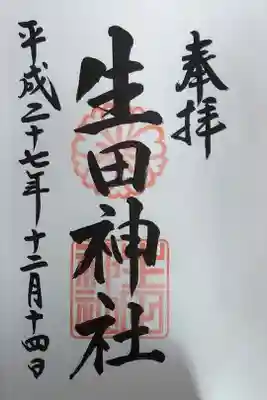 奉拝
生田神社
平成二十七年十二月十四日